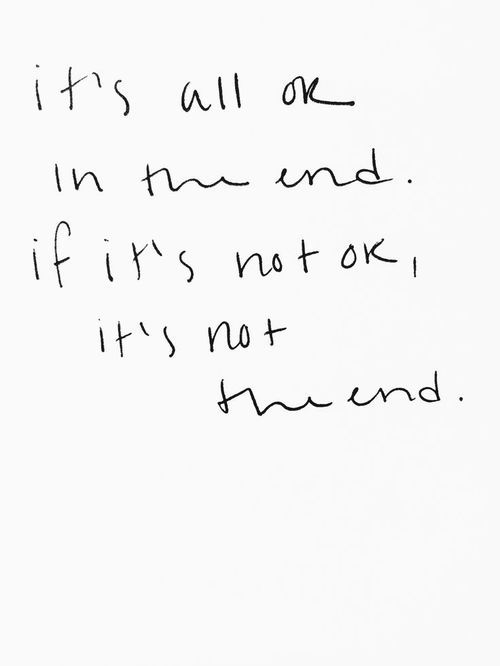 it's all ok
in the end.
if it's not ok,
it's not
the end.